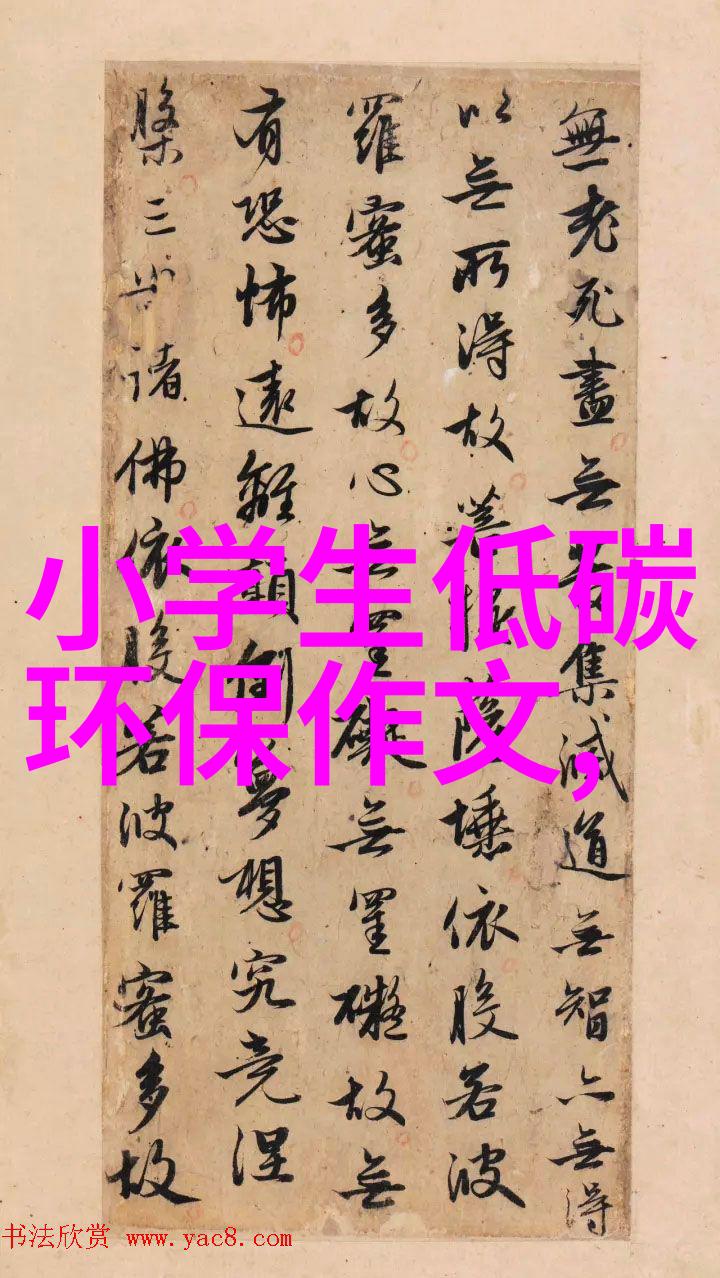 無老死盡無苦集滅道無智亦無得
以無所得故菩提薩埵依般若波
羅蜜多故心無罣礙無罣礙故無
有恐怖遠離顛倒夢想究竟涅
槃三世諸佛依般若波羅蜜多故
小学生低碳
环保作文,
书法欣赏 www.yac8.com